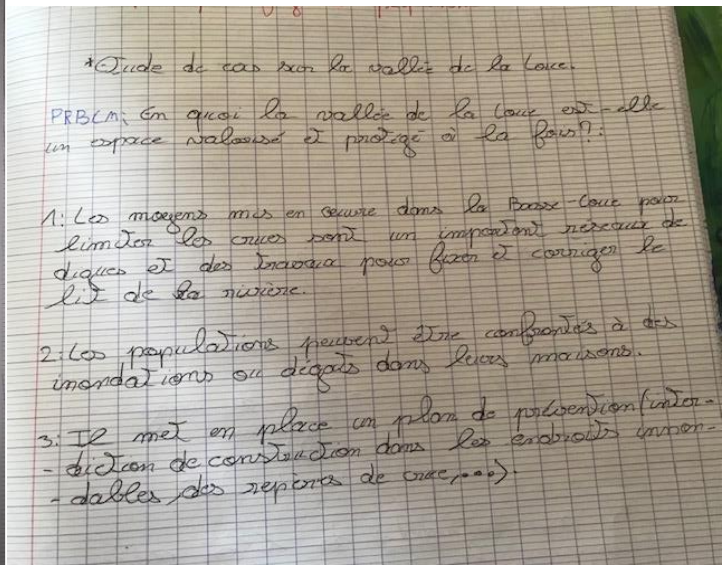 *Étude de cas sur la vallée de la Loue.
PRBLM: En quoi la vallée de la Loue est-elle
un espace valorisé et protégé à la fois?.
1: Les moyens mis en oeuvre dans la Basse-Loue pour
limiter les crues sont un important réseaux de
digues et des travaux pour fixer et corriger le
lit de la rivière.
2: Les populations peuvent être confrontés à des
inondations ou dégats dans leurs maisons.
3: Il met en place un plan de prévention (inter-
-diction de construction dans les endroits innon-
-dables, des repères de crue,...).